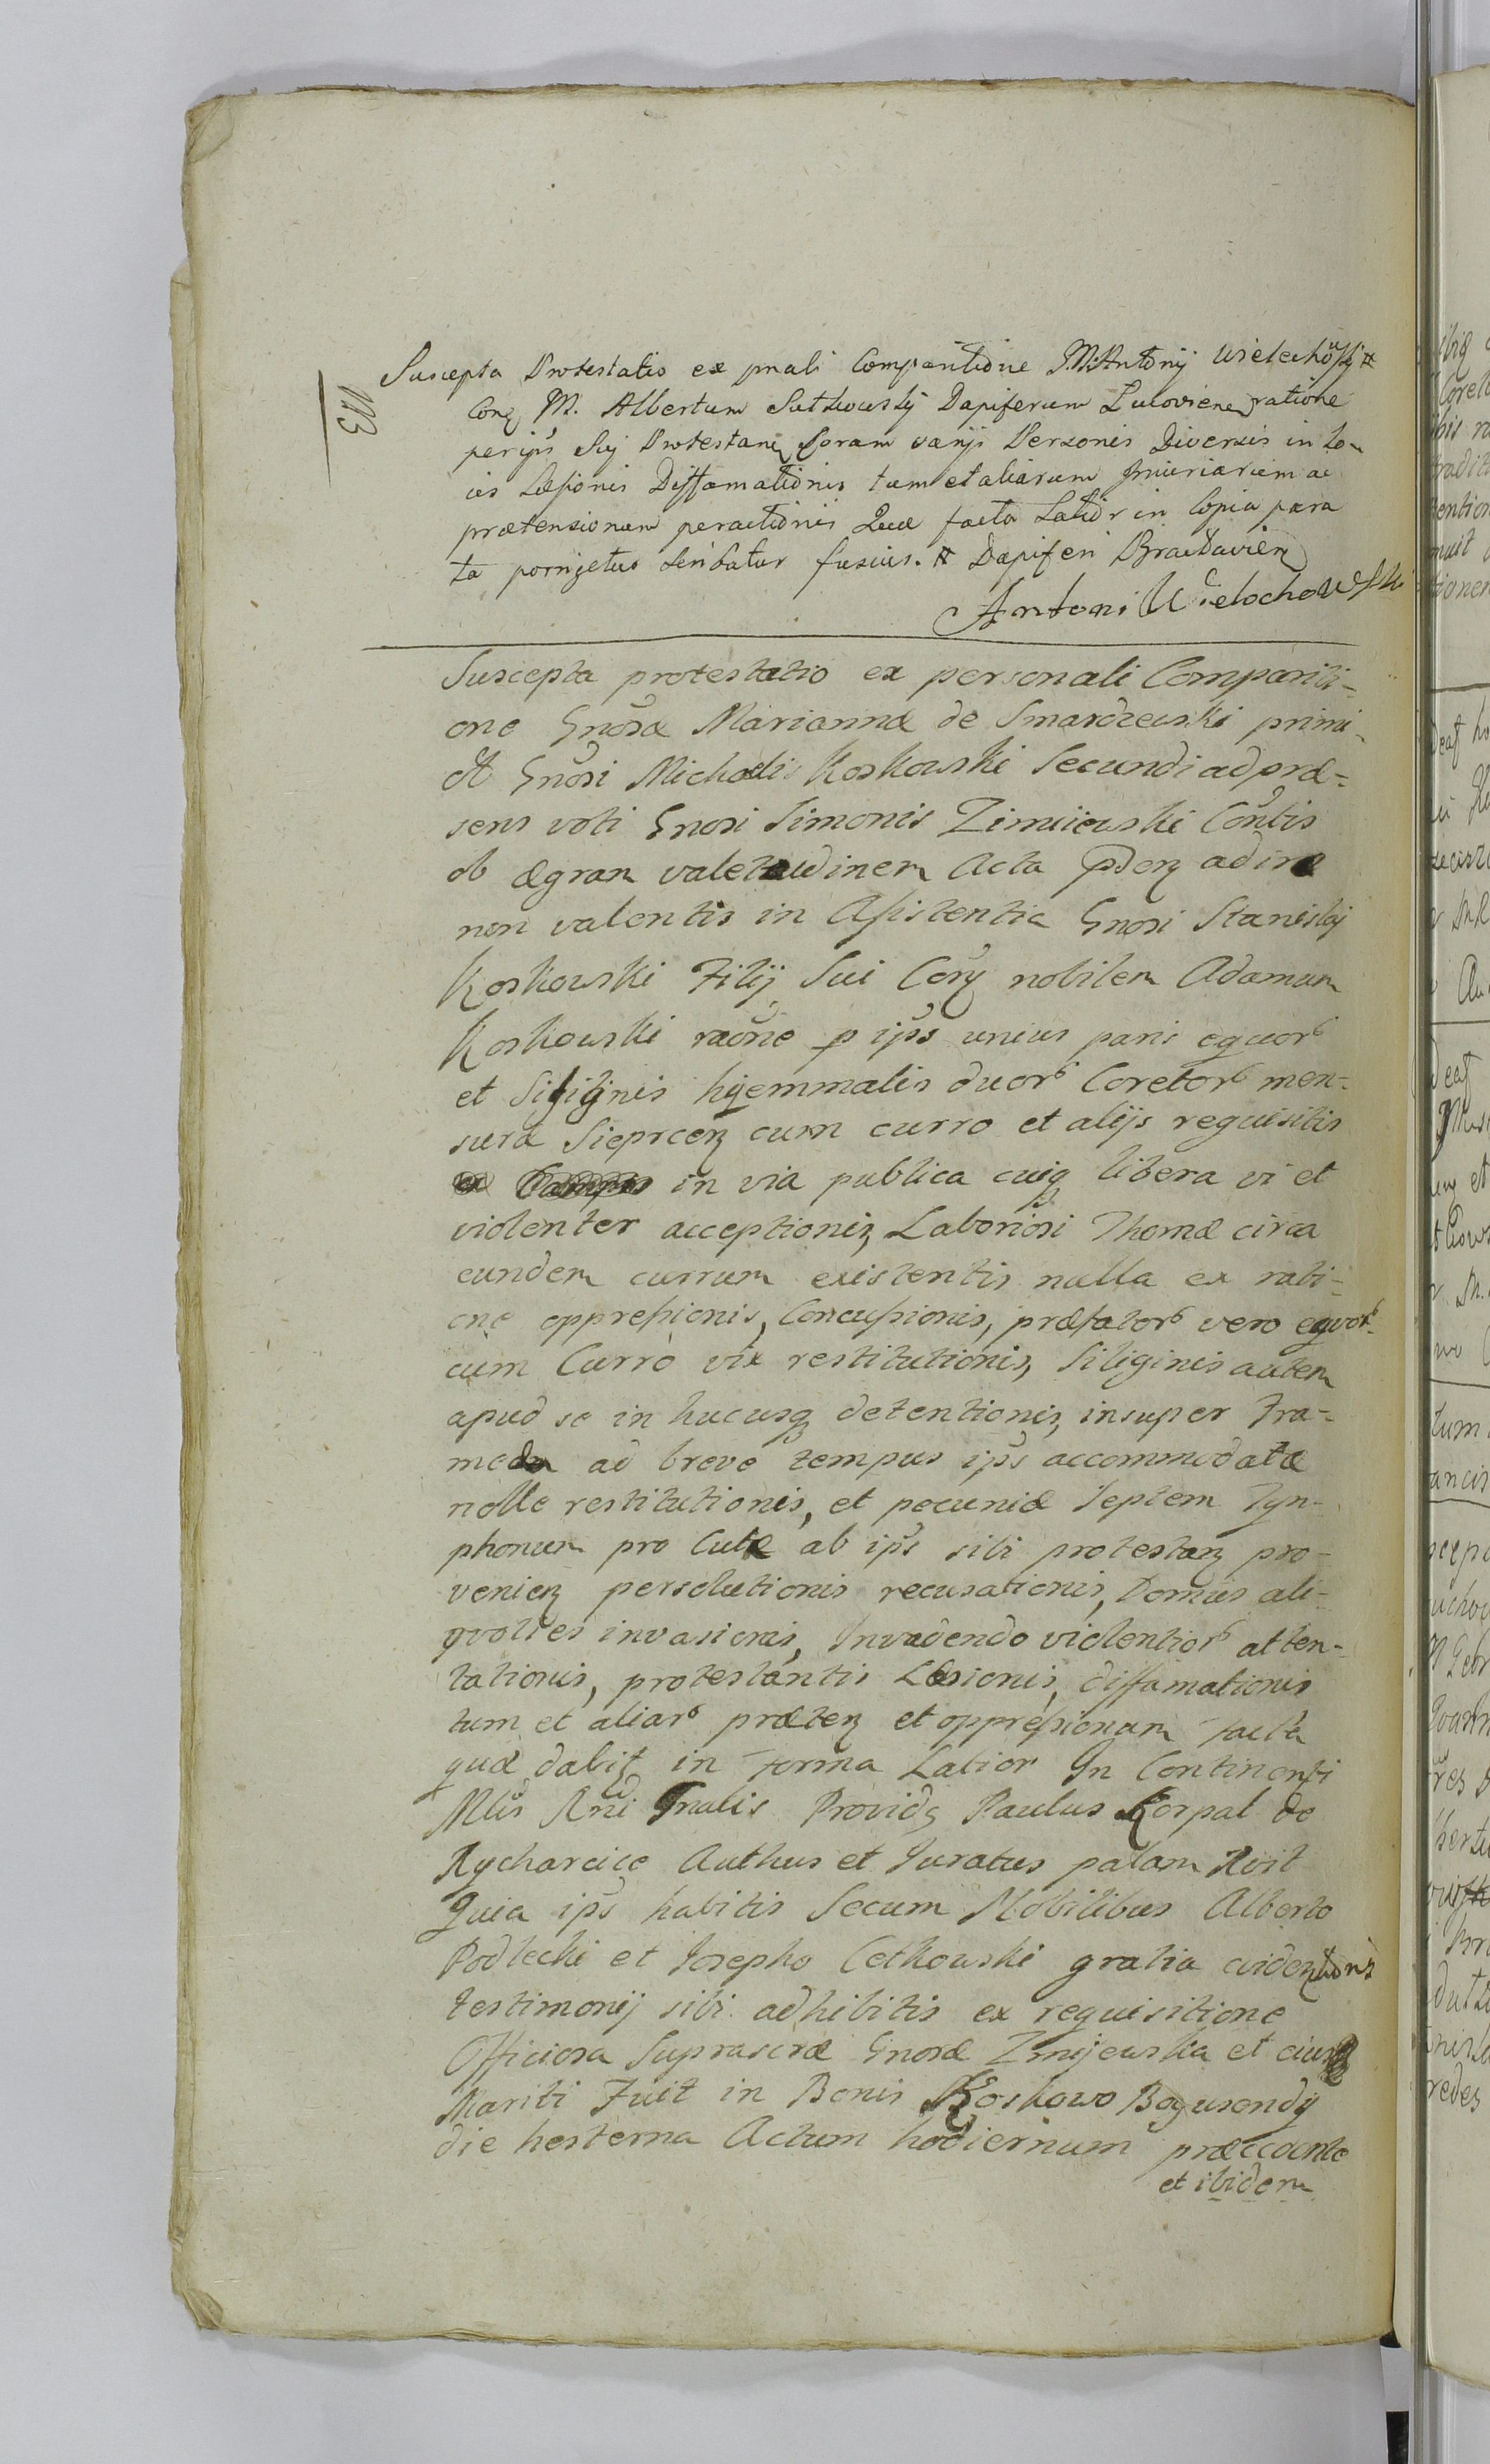 113
Suscepta Protestatio ex pnali Comparitione M. Antonij Wielechowskj #
Con M. Albertum Sutkowskj Dapiferum Lucovien ratione
per ips Sui Protestan Coram varijs Personis Diversis in lo-
cis Læsionis Diffamationis tum et aliarum Iniuriarum ac
prætensionum peractionis Quæ facta Latior in Copia para
ta porrigetur Scribatur fusius. # Dapiferi Braclavien
Antoni Wielochowski
Suscepta protestatio ex personali Compariti-
one Gnosæ Mariannæ de Smardzewski primi-
et Gnosi Michaelis Koskowski Secundi ad præ-
sens voti Gnosi Simonis Zimiiewski Contis
ob ægram valetudinem Acta pden adire
non valentis in Assistentia Gnosi Stanislaj
Koskowski Filij Sui Con nobilem Adamum
Koskowski raone p ips unius paris equor
et Siliginis hyemmalis duor Coretor men-
sura Sieprcen cum curro et alijs requisitis
in via publica cuiq libera vi et
violenter acceptionis, Laboriosi Thomæ circa
eundem currum existentis nulla ex rati-
one oppressionis, Concussionis, præfator vero equor
cum Curro vix restitutionis, Siliginis autem
apud se in hucusq detentionis, insuper Fra-
meda ad breve tempus ips accommodatæ
nolle restitutionis, et pecuniæ Septem Tyn-
phonum pro Cute ab ips sibi protestan pro-
venien persolutionis recusationis, Domus ali-
qvoties invasionis, Invadendo violentior atten-
tationis, protestantis Læsionis, diffamationis
tum et aliar præten et oppressionum facta
quæ dabit in forma Latior In Continenti
Mlis Rni Gnalis Provids Paulus Korpal de
Rycharcice Authus et Juratus palam Rvit
Quia ips habitis Secum Nobilibus Alberto
Podlecki et Josepho Cetkowski gratia evidentioris
testimonij sibi adhibitis ex requisitione
Officiosa Suprascræ Gnosæ Zmijewska et eius
Mariti Fuit in Bonis Koskowo Bogusendy
die hesterna Actum hodiernum præcedente
et ibidem